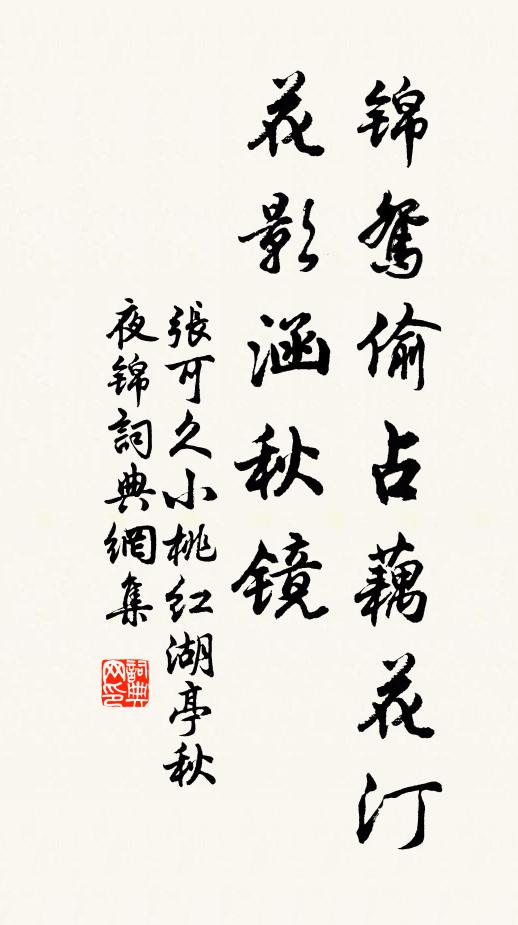 锦鸳偷占藕花汀
花影涵秋镜
張可久小桃红湖亭秋
夜锦詞典網集
詞典网印